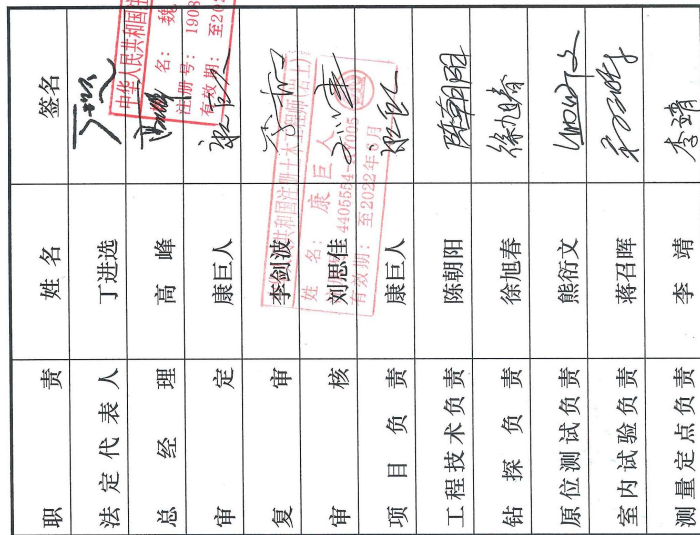 职 责 姓 名 签名
法定代表人 丁进选
总 经 理 高 峰
审 定 康巨人
复 审 李剑波
审 核 刘思佳
项 目 负 责 康巨人
工程技术负责 陈朝阳 陈朝阳
钻 探 负 责 徐旭春 徐旭春
原位测试负责 熊衍文
室内试验负责 蒋召晖
测量定点负责 李 靖 李靖
中华人民共和国注
名: 魏
注册号: 1908
有效期: 至202
共和国注册土木工程师(岩土)
姓 名: 康巨人
4405554
有效期: 至2022年6月